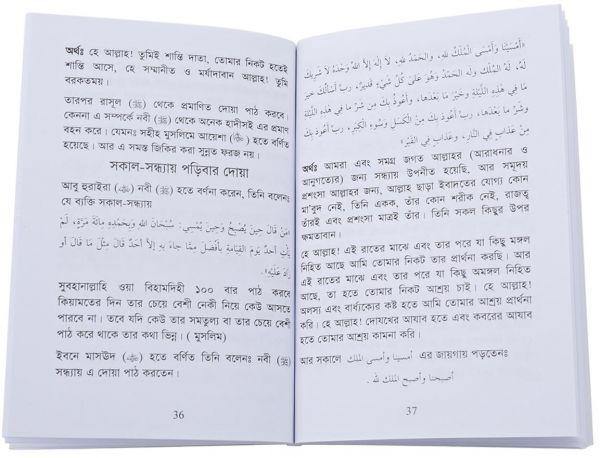 অর্থঃ হে আল্লাহ! তুমিই শান্তি দাতা, তোমার নিকট হতেই
শান্তি আসে, হে সম্মানীত ও মর্যাদাবান আল্লাহ! তুমি
বরকতময়।
তারপর রাসূল (ﷺ) থেকে প্রমাণিত দোয়া পাঠ করবে।
কেননা এ সম্পর্কে নবী (ﷺ) থেকে অনেক হাদীসই এর প্রমাণ
বহন করে। যেমনঃ সহীহ মুসলিমে আয়েশা হতে বর্ণিত
হয়েছে। আর এ সমস্ত জিকির করা সুন্নত ফরজ নয়।
সকাল-সন্ধ্যায় পড়িবার দোয়া
আবু হুরাইরা নবী (ﷺ) হতে বর্ণনা করেন, তিনি বলেনঃ
যে ব্যক্তি সকাল-সন্ধ্যায়
«مَنْ قَالَ حِيْنَ يُصْبِحُ وَحِيْنَ يُمْسِي: سُبْحَانَ اللهِ وَبِحَمْدِهِ مِائَةَ مَرَّةٍ، لَمْ
يَأْتِ أَحَدٌ يَوْمَ الْقِيَامَةِ بِأَفْضَلَ مِمَّا جَاءَ بِهِ إِلَّا أَحَدٌ قَالَ مِثْلَ مَا قَالَ أَوْ
زَادَ عَلَيْهِ»
সুবহানাল্লাহি ওয়া বিহামদিহী ১০০ বার পাঠ করবে
কিয়ামতের দিন তার চেয়ে বেশী নেকী নিয়ে কেউ আসতে
পারবে না। তবে যদি কেউ তার সমতুল্য বা তার চেয়ে বেশী
পাঠ করে থাকে তার কথা ভিন্ন। ( মুসলিম)
ইবনে মাসঊদ হতে বর্ণিত তিনি বলেনঃ নবী (ﷺ)
সন্ধ্যায় এ দোয়া পাঠ করতেন।
36
«أَمْسَيْنَا وَأَمْسَى الْمُلْكُ لِلهِ، وَالْحَمْدُ لِلهِ، لَا إِلٰهَ إِلَّا اللهُ وَحْدَهُ لَا شَرِيكَ
لَهُ، لَهُ الْمُلْكُ وَلَهُ الْحَمْدُ وَهُوَ عَلَى كُلِّ شَيْءٍ قَدِيْرٌ، رَبِّ أَسْأَلُكَ خَيْرَ
مَا فِي هَذِهِ اللَّيْلَةِ وَخَيْرَ مَا بَعْدَهَا، وَأَعُوذُ بِكَ مِنْ شَرِّ مَا فِي هَذِهِ اللَّيْلَةِ
وَشَرِّ مَا بَعْدَهَا، رَبِّ أَعُوذُ بِكَ مِنَ الْكَسَلِ وَسُوءِ الْكِبَرِ، رَبِّ أَعُوذُ بِكَ
مِنْ عَذَابٍ فِي النَّارِ، وَعَذَابٍ فِي الْقَبْرِ».
অর্থঃ আমরা এবং সমগ্র জগত আল্লাহর (আরাধনার ও
আনুগত্যের) জন্য সন্ধ্যায় উপনীত হয়েছি, আর সমূদয়
প্রশংসা আল্লাহর জন্য, আল্লাহ ছাড়া ইবাদতের যোগ্য কোন
মা'বুদ নেই, তিনি একক, তাঁর কোন শরীক নেই, রাজত্ব
তাঁরই এবং প্রশংসা মাত্রই তাঁর। তিনি সকল কিছুর উপর
ক্ষমতাবান।
হে আল্লাহ! এই রাতের মাঝে এবং তার পরে যা কিছু মঙ্গল
নিহিত আছে আমি তোমার নিকট তার প্রার্থনা করছি। আর
এই রাতের মাঝে এবং তার পরে যা কিছু অমঙ্গল নিহিত
আছে, তা হতে তোমার নিকট আশ্রয় চাই। হে আল্লাহ!
অলস্য এবং বার্ধ্যক্যের কষ্ট হতে আমি তোমার আশ্রয় প্রার্থনা
করি। হে আল্লাহ! দোযখের আযাব হতে এবং কবরের আযাব
হতে তোমার আশ্রয় কামনা করি।
আর সকালে أمسينا وأمسى الملك لله এর জায়গায় পড়তেনঃ
أصبحنا وأصبح الملك لله .
37